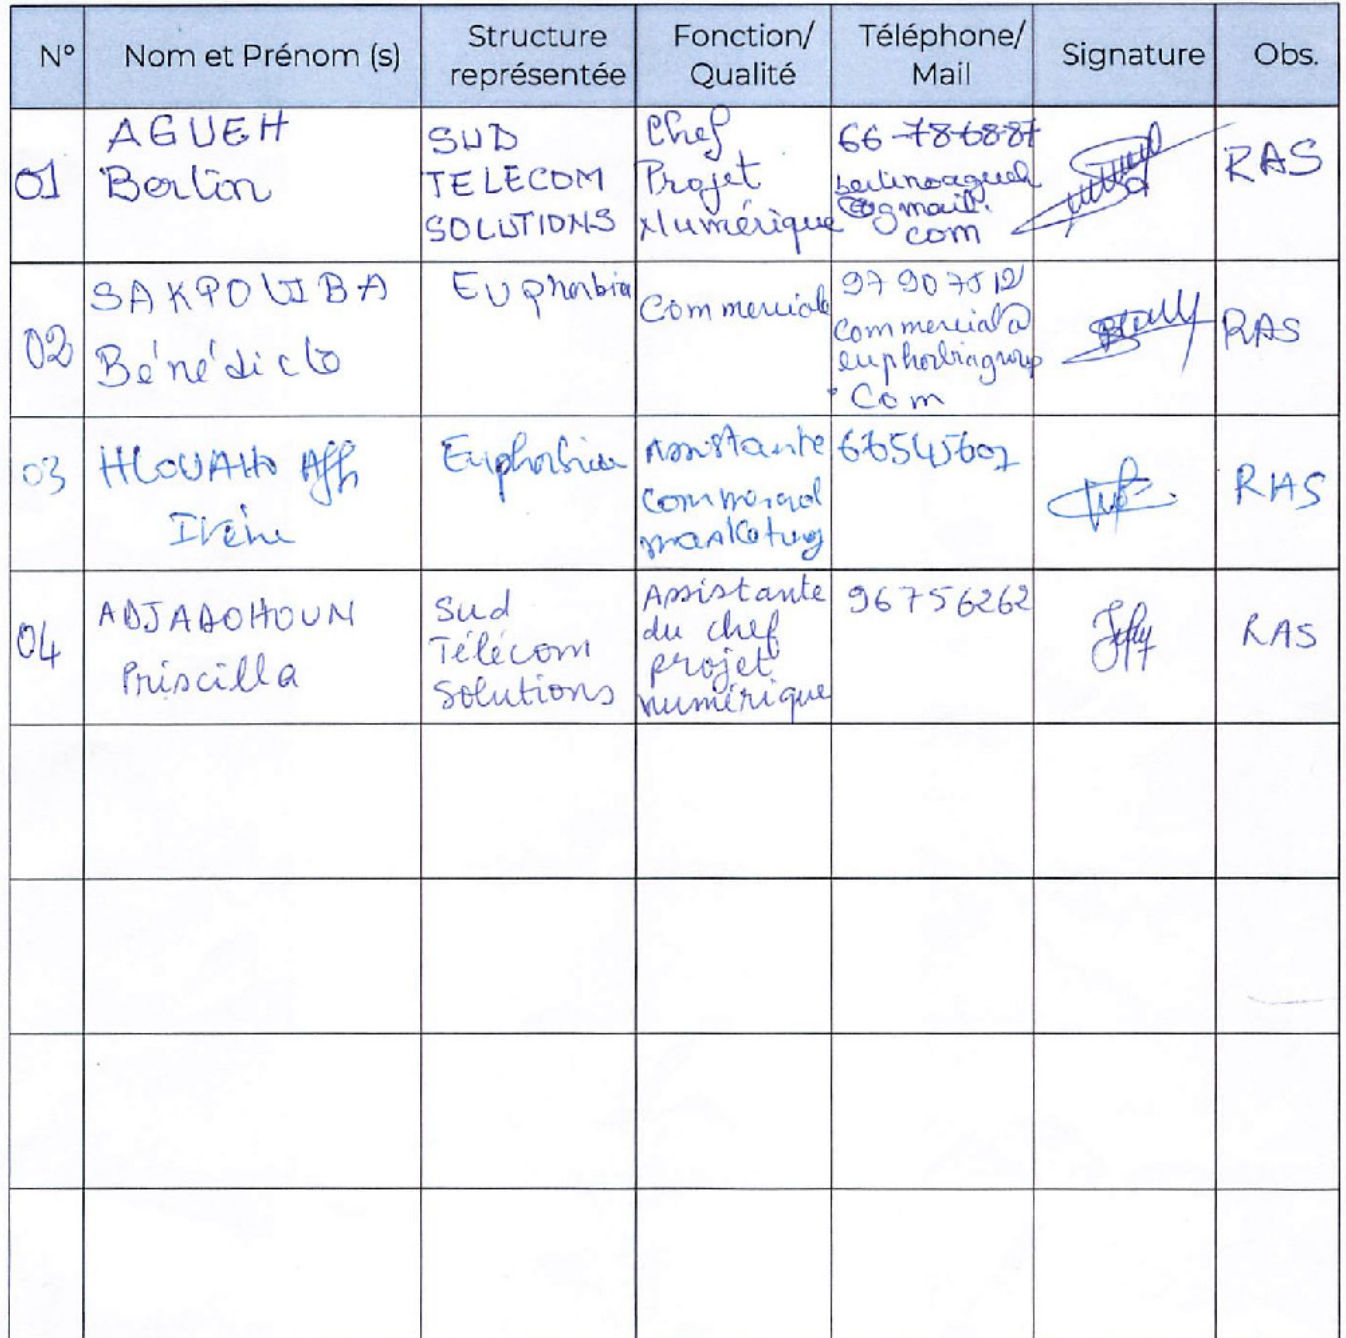 N° Nom et Prénom (s) Structure représentée Fonction/ Qualité Téléphone/ Mail Signature Obs.
01 AGUEH Berlin SUD TELECOM SOLUTIONS Chef Projet Numérique 66-78-68-87 @gmail.com RAS
02 SAKPOWBA Bénédicte Euphorbia Commerciale 97907512 commercial@euphorbiagroup.com RAS
03 Irène Euphorbia Assistante commercial marketing RAS
04 ADJADOHOUN Priscilla Sud Télécom Solutions Assistante du chef projet numérique 96756262 RAS